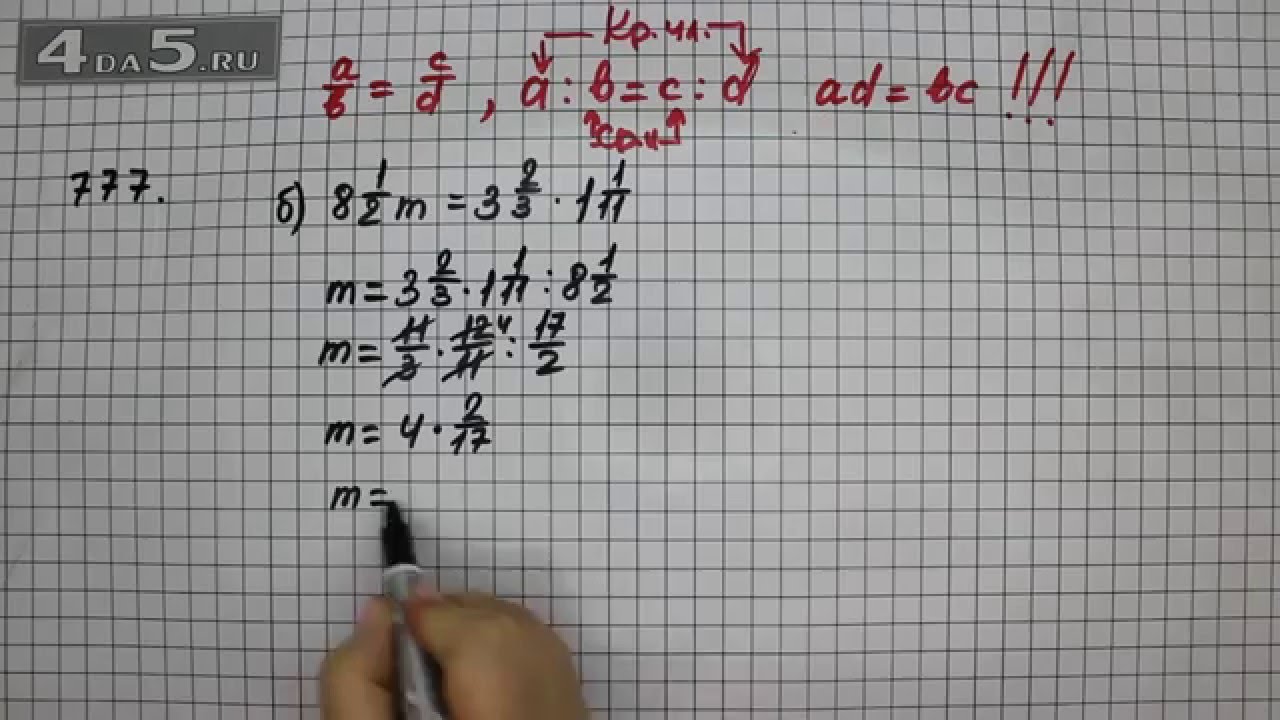 4DA5.RU
Кр.чл.
a/b = c/d , a : b = c : d ad = bc !!!
ср.чл.
777. б) 8 1/2 m = 3 2/3 · 1 1/11
m = 3 2/3 · 1 1/11 : 8 1/2
m = 11/3 · 12/11 4 : 17/2
m = 4 · 2/17
m =